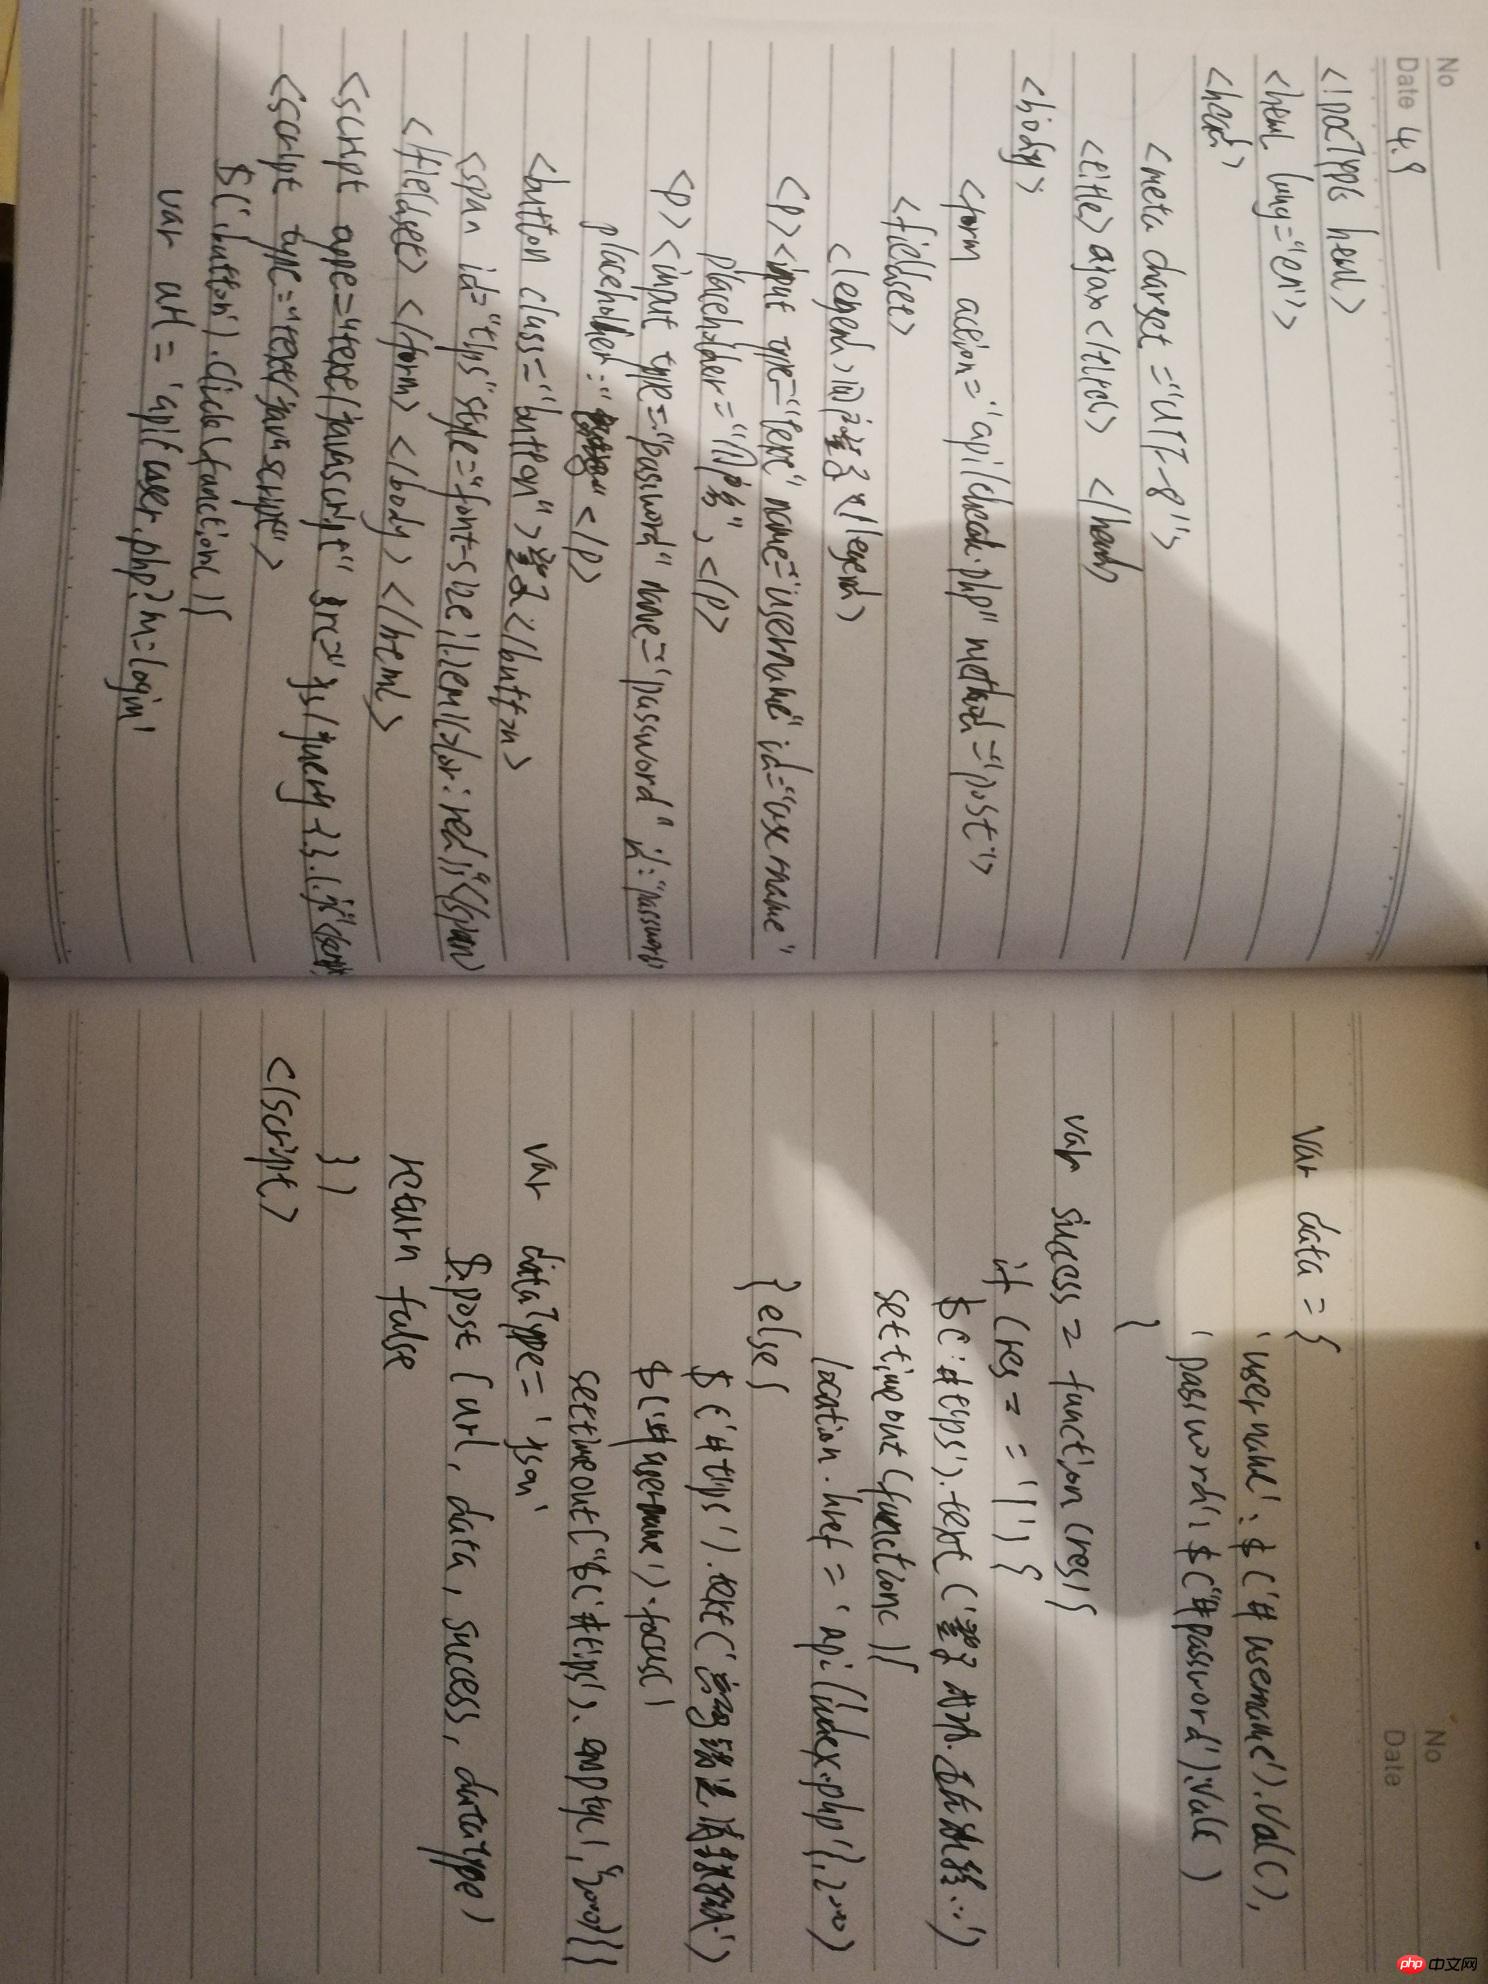 No
Date 4.9
<!DOCTYPE html>
<html lang="en">
<head>
<meta charset="UTF-8">
<title>ajax</title> </head>
<body>
<form action="api/check.php" method="post">
<fieldset>
<legend>用户登录</legend>
<p><input type="text" name="username" id="username"
placeholder="用户名", </p>
<p><input type="password" name="password" id:"password
placeholder:" " </p>
<button class="button">登录</button>
<span id="tips" style="font-size:1.2em;color:red;"></span>
</fieldset> </form> </body> </html>
<script type="text/javascript" src="js/jquery-3.3.1.js"</script>
<script type="text/javascript">
$('button').click(function(){
var url = 'api/user.php?m=login'
No
Date
var data = {
'username': $('#username').val(),
'password': $("#password').val()
}
var success = function(res){
if (res == '1') {
$('#tips').text('登录成功.正在跳转...')
settimeout(function(){
location.href = 'api/index.php'},2000)
}else{
$('#tips').text('错误请重新')
$('#username').focus()
settimeout("$('#tips').empty(),2000)}}
var dataType = 'json'
$.post(url, data, success, dataType)
return false
})
</script>
php 中文网